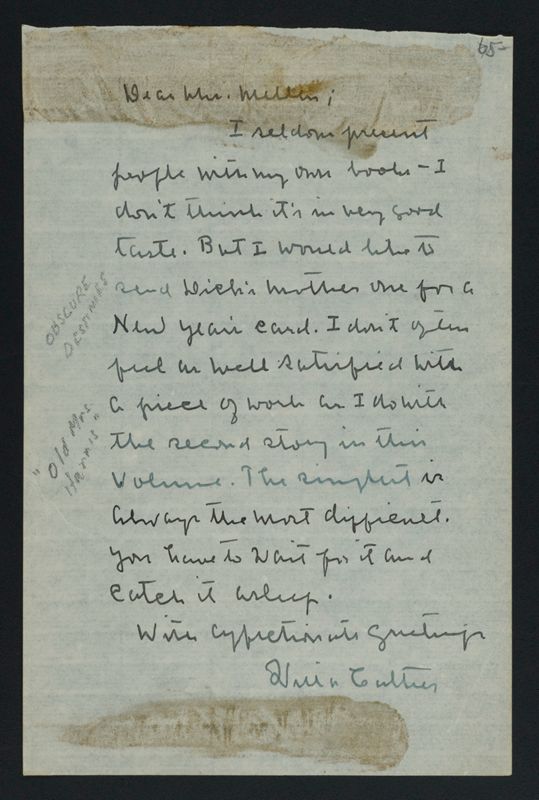 65-
Dear Mrs. Mellen;
I seldom present
people with my own books - I
don't think it's in very good
taste. But I would like to
send Dick's mother one for a
New Year's card. I don't often
feel as well satisfied with
a piece of work as I do with
the second story in this
volume. The simplest is
always the most difficult.
You have to wait for it and
catch it asleep.
With affectionate Greetings
Willa Cather
OBSCURE
DESTINIES
"Old Mrs.
Harris"